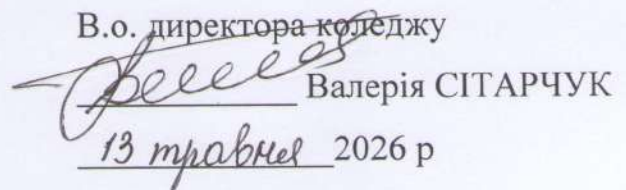 В.о. директора коледжу
Валерія СІТАРЧУК
13 травня 2026 р